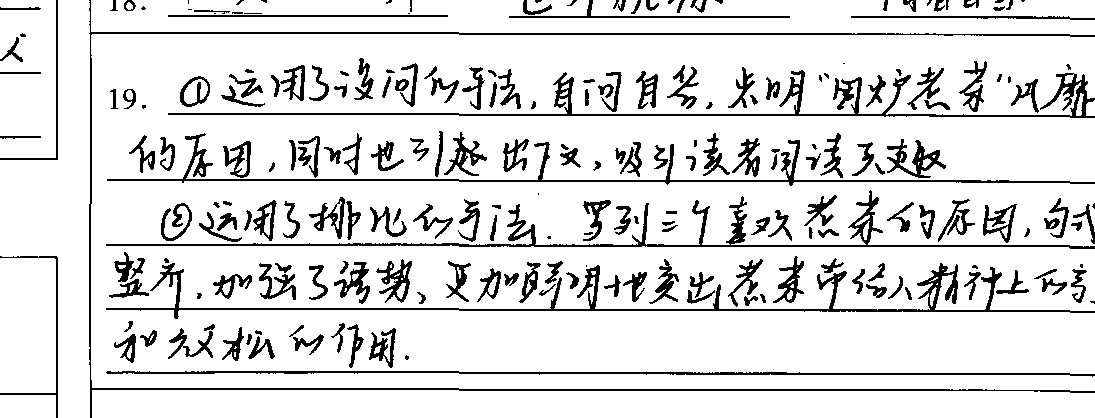 18.
19. ①运用了设问的手法,自问自答,点明"围炉煮茶"风靡
的原因,同时也引起出下文,吸引读者阅读兴趣
②运用了排比的手法.罗列三个喜欢煮茶的原因,句式
整齐,加强了语势、更加鲜明地突出煮茶带给人精神上的
和放松的作用.